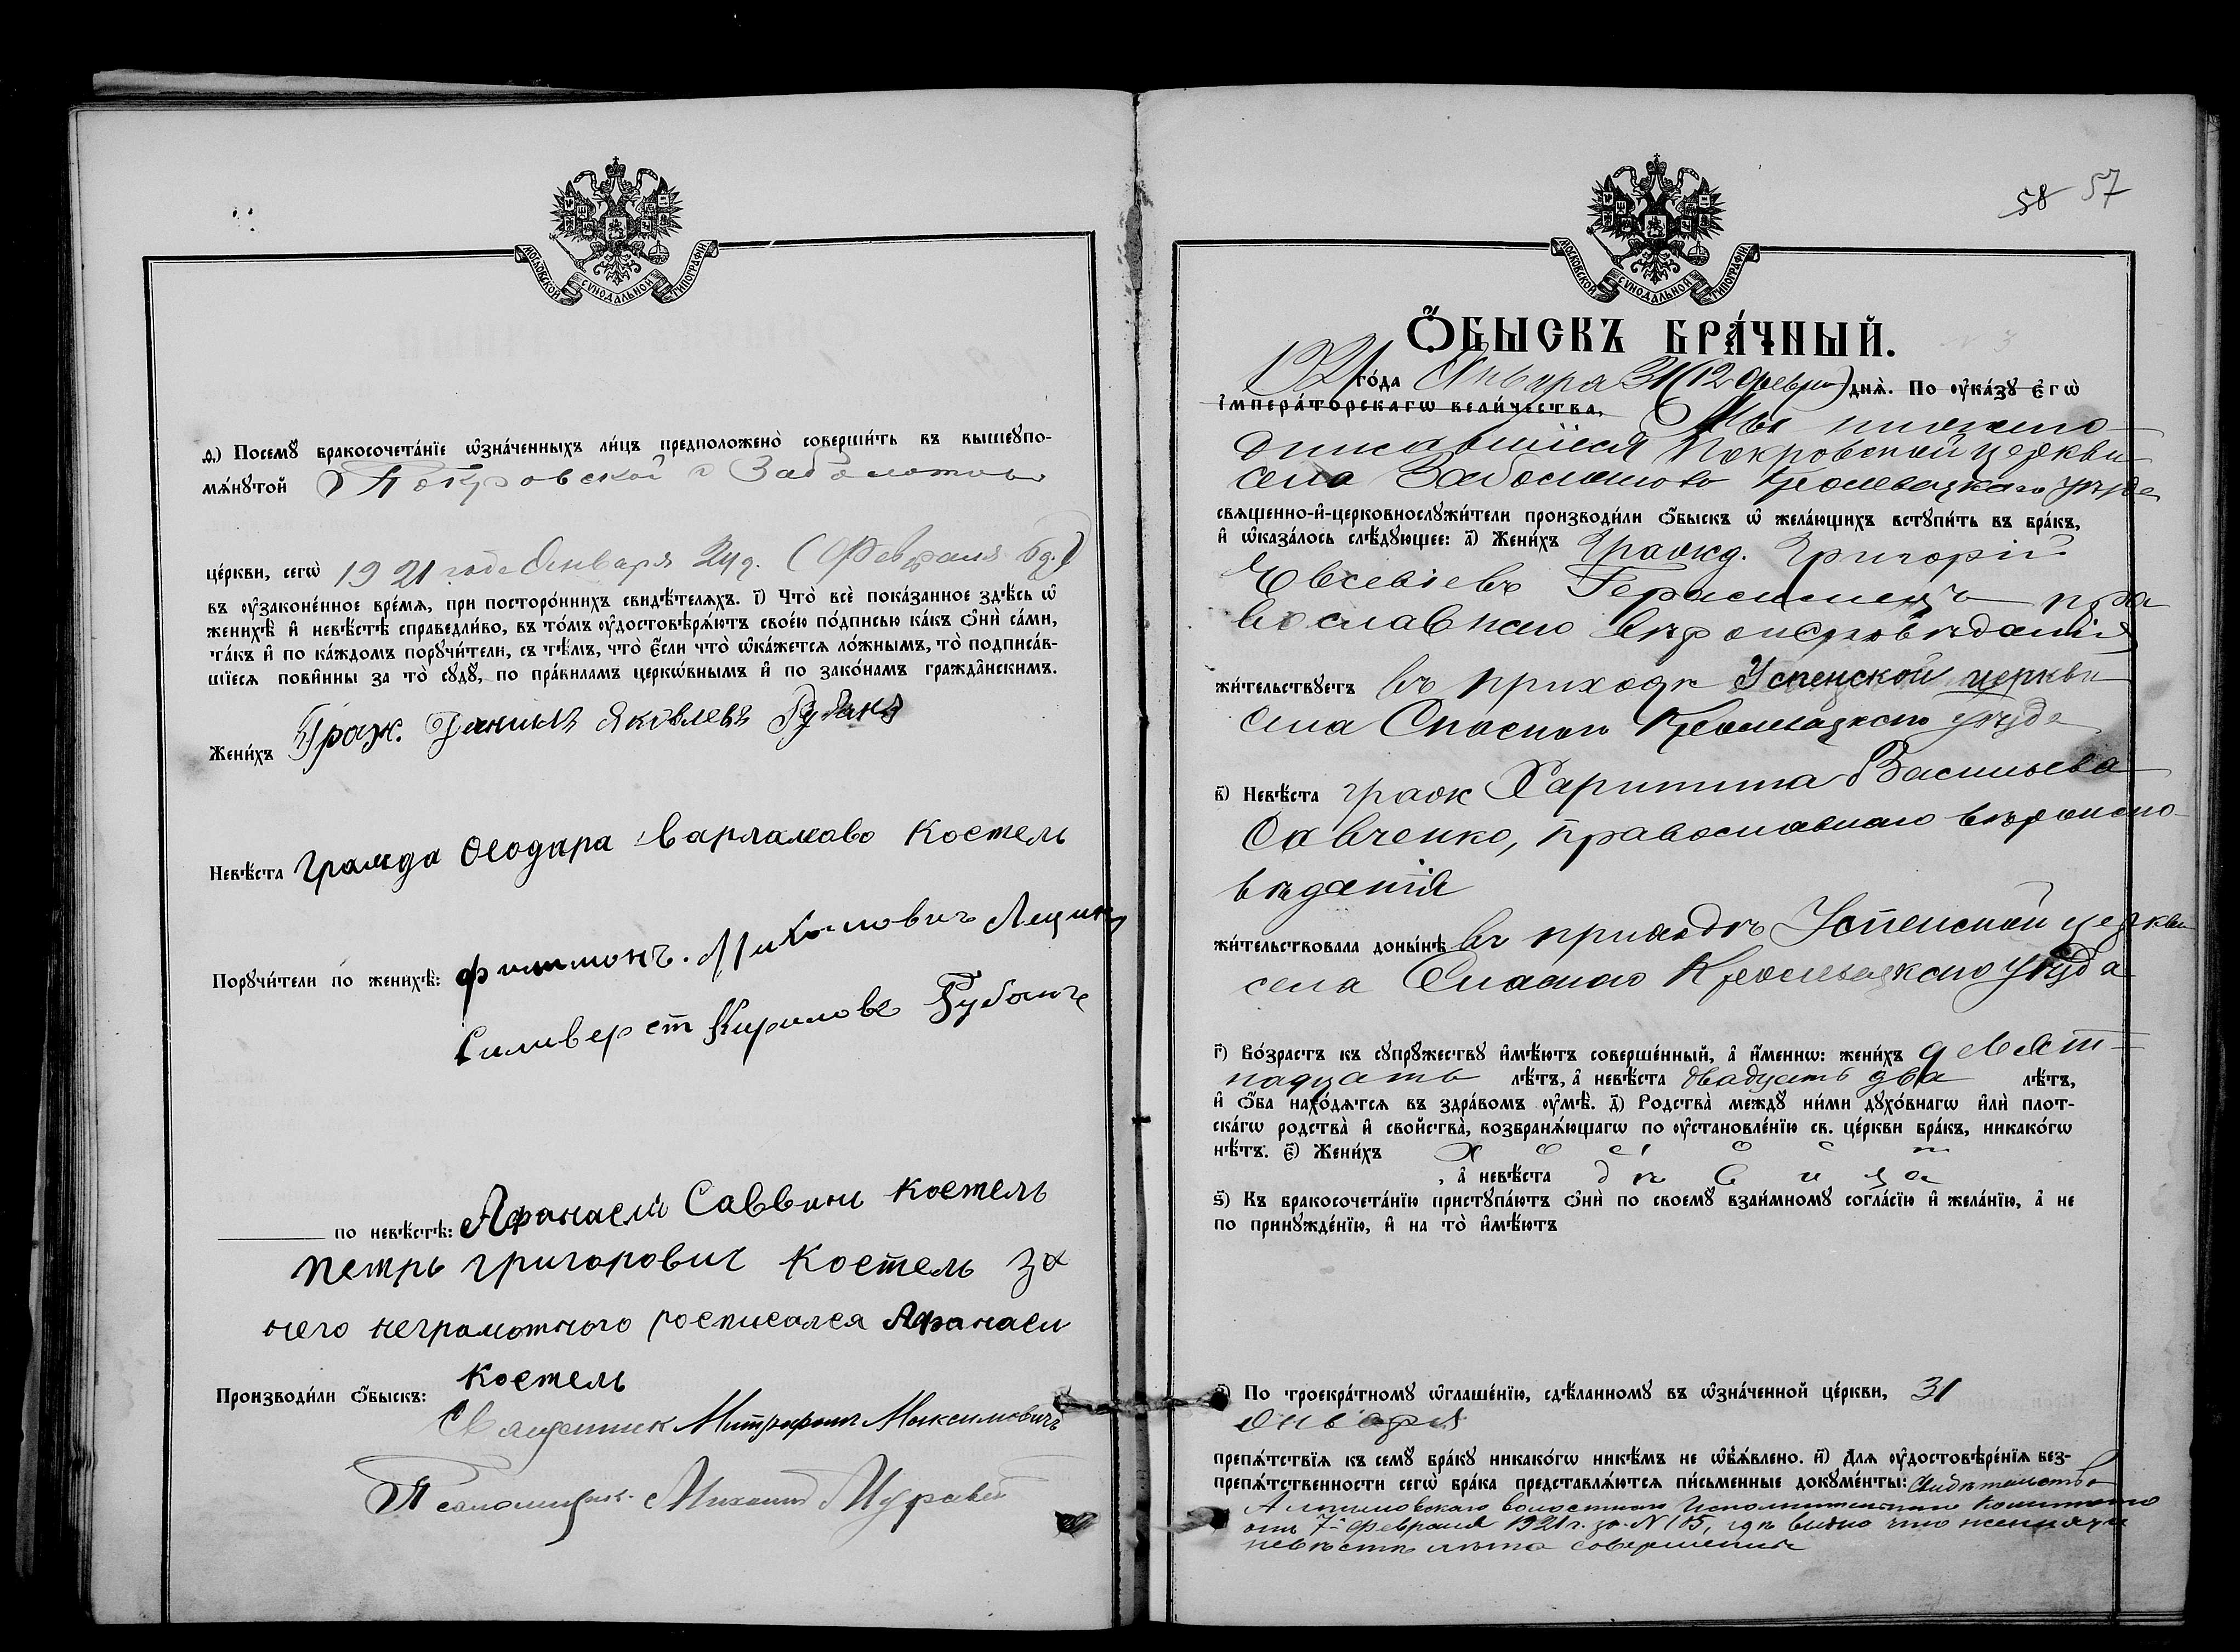 МОСКОВСКОЙ СѴНОДАЛЬНОЙ ТИПОГРАФІИ
ѳ.) Посемꙋ бракосочета́нїе ѡ҆зна́ченныхъ ли́цъ предположено̀ соверши́ть въ вышеꙋпо-
мѧ́нꙋтой Покровской с Заболотово
це́ркви, сегѡ̀ 1921 года Января 24 д. (Февраля 6 д.)
въ ᲂу҆законе́нное вре́мѧ, при посторо́ннихъ свидѣ́телѧхъ. і҃) Что̀ всѐ пока́занное здѣ́сь ѡ҆
женихѣ̀ и҆ невѣ́стѣ справедли́во, въ то́мъ ᲂу҆достовѣрѧ́ютъ свое́ю по́дписью ка́къ ѻ҆нѝ са́ми,
та́къ и҆ по ка́ждомъ порꙋчи́тели, съ тѣ́мъ, что̀ є҆́сли что̀ ѡ҆ка́жетсѧ ло́жнымъ, то̀ подписа́в-
шїесѧ пови́нны за то̀ сꙋдꙋ̀, по пра́виламъ церко́внымъ и҆ по зако́намъ гражда̑нскимъ.
Жени́хъ Граж. Данилъ Яковлевъ Рубанъ
Невѣ́ста Гражда Ѳеодара Варламово Костель
Порꙋчи́тели по женихѣ̀: Филимонъ. Михайлович Лещина
Силиверст Кирилове Рубанъ
по невѣ́стѣ: Афанасій Саввичь Костель
Петръ Григорович Костель за
него неграмотного росписался Афанаси
Костель
Производи́ли ѻ҆́быскъ:
Священник Митрофанъ Максимовичъ
Псаломщик. Михаилъ Муравей
58 57
МОСКОВСКОЙ СѴНОДАЛЬНОЙ ТИПОГРАФІИ
Ѻ҆́БЫСКЪ БРА́ЧНЫЙ.
1921 го́да Января 31 (12 Февраля) днѧ̀. По ᲂу҆ка́зꙋ Є҆гѡ̀
І҆мпера́торскагѡ вели́чества, Мы нижепо
дписавшіеся Покровской церкви
села Заболотово Кролевецкаго уѣзда
свѧщенно-и҆-церковнослꙋжи́тели производи́ли ѻ҆́быскъ ѡ҆ жела́ющихъ встꙋпи́ть въ бра́къ,
и҆ ѡ҆каза́лось слѣ́дꙋющее: а҃) Жени́хъ Гражд. Григорій
Евсевіевъ Герасимецъ пра
вославнаго вѣроисповѣданія
жи́тельствꙋетъ въ приходѣ Успенской церкви
села Спаскаго Кролевецкаго уѣзда
в҃) Невѣ́ста граж Харитина Васильева
Савченко, православнаго вѣроиспо-
вѣданія
жи́тельствовала доны́нѣ въ приходѣ Успенской церкви
села Спаскаго Кролевецкаго уѣзда
г҃) Во́зрастъ къ сꙋпрꙋ́жествꙋ и҆мѣ́ютъ соверше́нный, а҆ и҆́менно: жени́хъ девят-
надцать лѣ́тъ, а҆ невѣ́ста двадцать два лѣ́тъ,
и҆ ѻ҆́ба нахо́дѧтсѧ въ здра́вомъ ᲂу҆мѣ̀. д҃) Родства̀ междꙋ̀ ни́ми дꙋхо́внагѡ и҆лѝ плот-
ска́гѡ родства̀ и҆ свойства̀, возбранѧ́ющагѡ по ᲂу҆становле́нїю св. це́ркви бра́къ, никако́гѡ
нѣ́тъ. є҃) Жени́хъ холост
, а҆ невѣ́ста дѣвица
ѕ҃) Къ бракосочета́нїю пристꙋпа́ютъ ѻ҆нѝ по своемꙋ̀ взаи́мномꙋ согла́сїю и҆ жела́нїю, а҆ не
по принꙋжде́нїю, и҆ на то̀ и҆мѣ́ютъ
з҃) По троекра́тномꙋ ѡ҆глаше́нїю, сдѣ́ланномꙋ въ ѡ҆зна́ченной це́ркви, 31
Января
препѧ́тствїѧ къ семꙋ̀ бра́кꙋ никако́гѡ никѣ́мъ не ѡ҆б̾ѧ́влено. и҃) Длѧ ᲂу҆достовѣре́нїѧ без-
препѧ́тственности сегѡ̀ бра́ка представлѧ́ютсѧ пи́сьменные докꙋме́нты: Свидѣтельство
волостнаго Исполнительнаго Комитета
отъ 7-Февраля 1921 г. за N 105, гдѣ видно что жениху и
невѣстѣ лѣта совершенныя